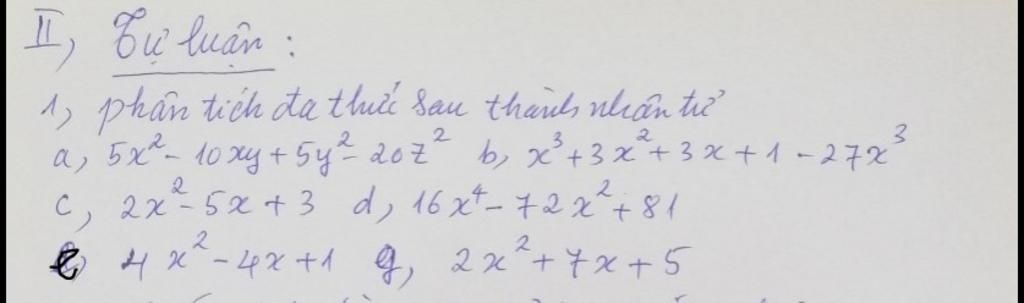 II, Tự luận :
1, phân tích đa thức sau thành nhân tử
a, 5x² - 10xy + 5y² - 20z² b, x³ + 3x² + 3x + 1 - 27x³
c, 2x² - 5x + 3 d, 16x⁴ - 72x² + 81
e, 4x² - 4x + 1 g, 2x² + 7x + 5